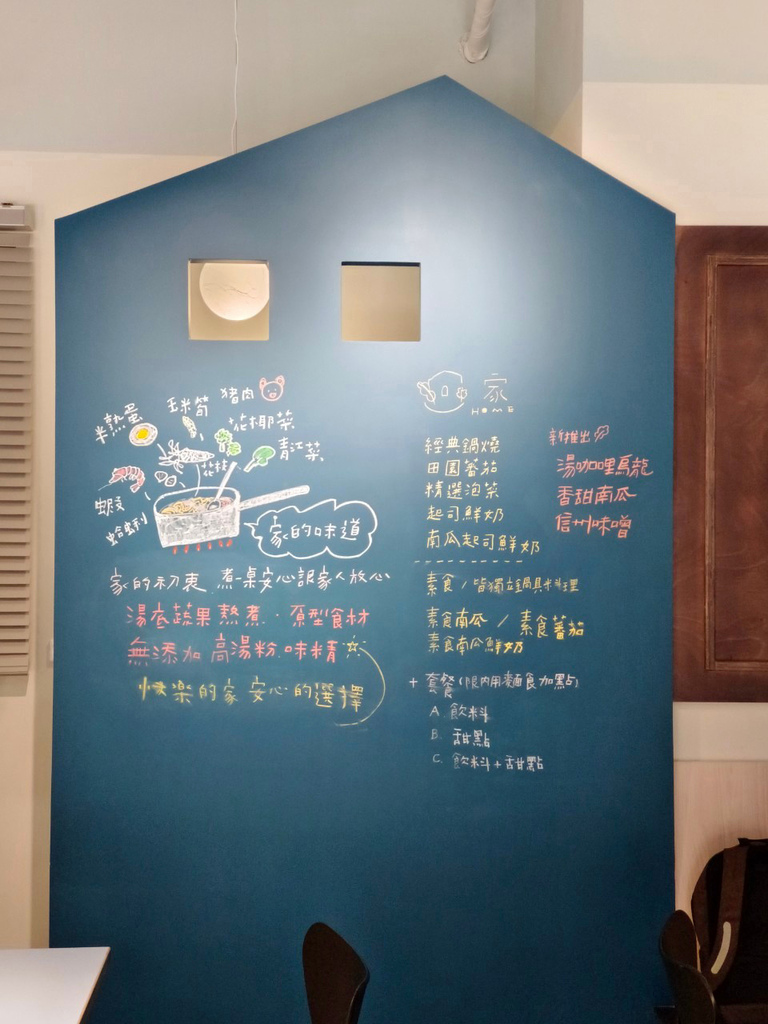 豬肉
玉米筍
半熟蛋
花椰菜
青江菜
花枝
蝦
蛤蜊
家的味道
家的初衷 煮一桌安心讓家人放心
湯底蔬果熬煮、原型食材
無添加 高湯粉.味精
快樂的家 安心的選擇
家
HOME
經典鍋燒
田園蕃茄
精選泡菜
起司鮮奶
南瓜起司鮮奶
新推出
湯咖哩烏龍
香甜南瓜
信州味噌
素食/皆獨立鍋具料理
素食南瓜 / 素食蕃茄
素食南瓜鮮奶
+ 套餐(限內用麵食加點)
A. 飲料
B. 甜點
C. 飲料+甜點